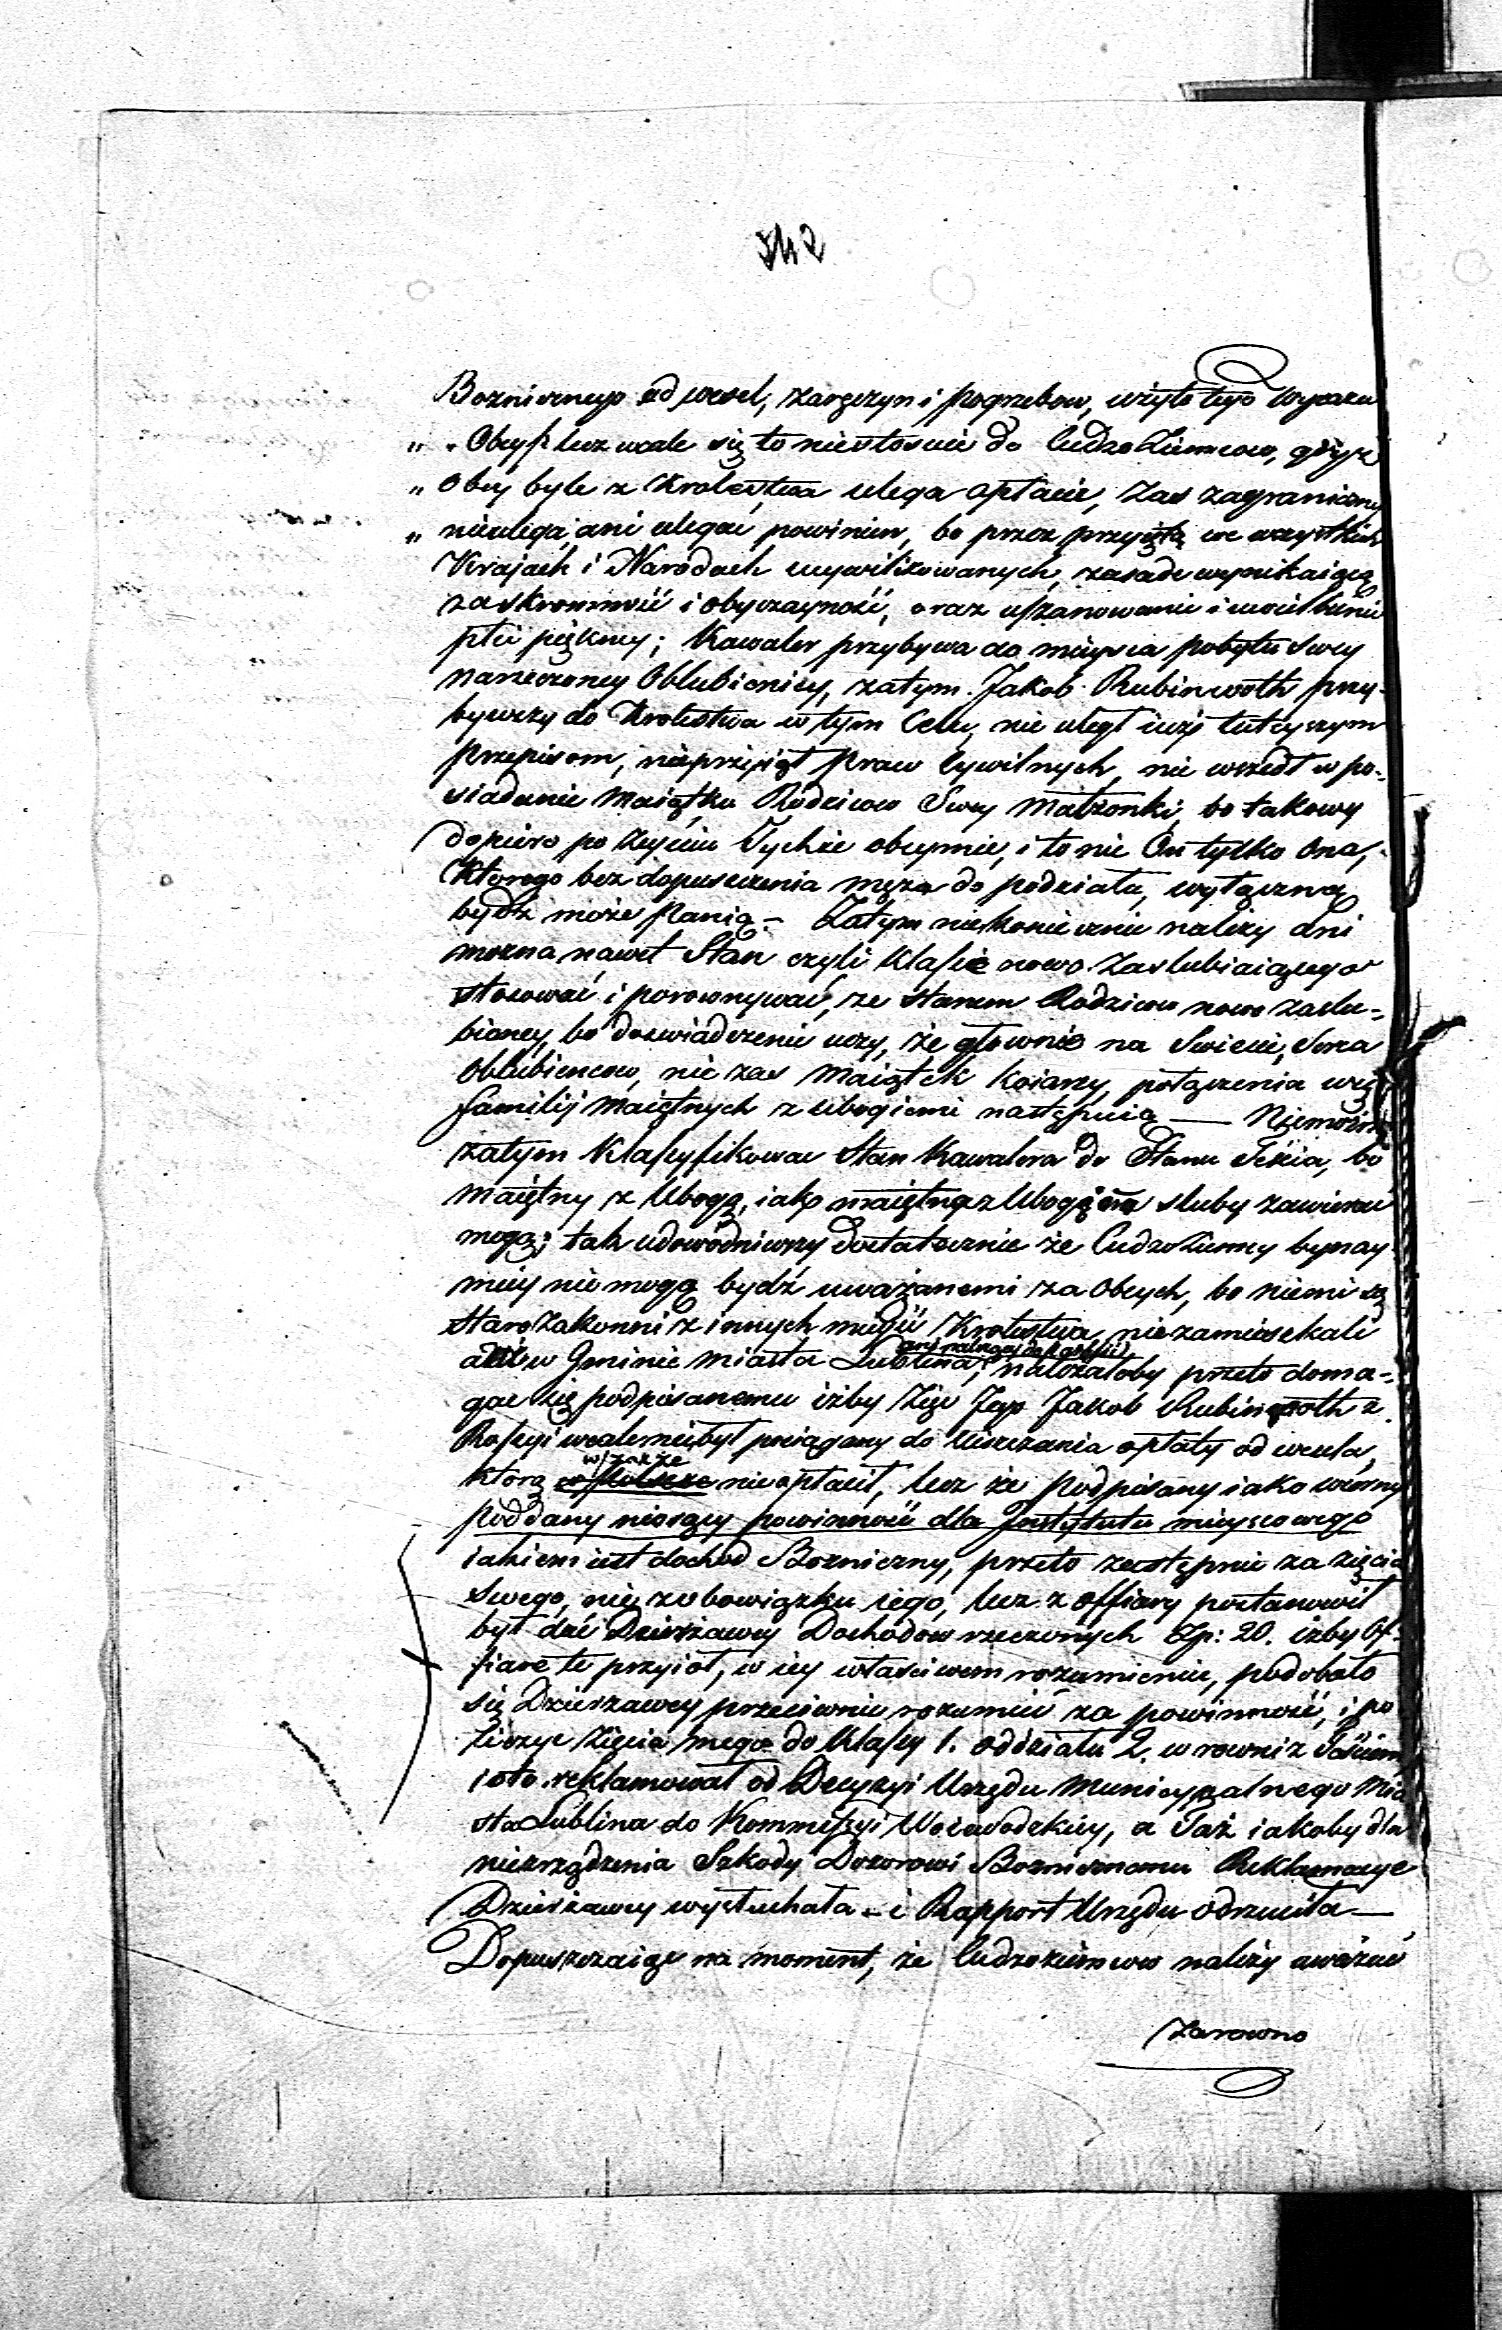 542
Boznicznego od wesel, zaręczyn i pogrzebow, użyto tego wyrazu
„ „ Obcy" lecz wcale się to niestosuie do Cudzoziemcow, gdyż
„ Obcy byle z Krolestwa ulega opłacie, zaś zagraniczny
„ nieulega, ani ulegać powinien, bo przez przyiętą we wszystkich
Krajach i Narodach ucywilizowanych, zasadę wynikaiącą
za skromność i obyczayność, oraz uszanowanie i uwielbienie
płci piękney; Kawaler przybywa do mieysca pobytu swey
narzeczoney Oblubienicy, zatym Jakob Rubinroth przy-
bywszy do Krolestwa w tym Celu, nie uległ iuż tuteyszym
przepisom, nieprzyiął praw Cywilnych, nie wszedł w po-
siadanie Maiątku Rodzicow Swey Małżonki, bo takowy
dopiero po zeyściu Tychże obeymie, i to nie On tylko Ona,
Ktorego bez dopuszczenia męża do podziału, wyłączną
bydź może Panią – Zatym niekoniecznie należy Ani
można nawet Stan czyli Klassę nowo Zaslubiaiącego
stosować i porownywać, ze stanem Rodzicow nowo zaslu-
bioney, bo doswiadczenie uczy, że głownie na Swiecie, Serca
Oblubiencow, nie zas Maiątek Koiarzy, połączenia więc
familij Maiętnych z Ubogiemi następuią — Niemożna
zatym Klassyfikować Stan Kawalera do Stanu Teścia, bo
Maiętny z Ubogą, iako maiętna z Ubogiem sluby zawierać
mogą; tak udowodniwszy dostatecznie że Cudzoziemcy bynay
mniey nie mogą bydź uważanemi za Obcych, bo niemi są
Starozakonni z innych mieysc Krolestwa, niezamieszkali
ani należący do Parafii
w Gminie Miasta Lublina; należałoby przeto doma-
gać się podpisanemu iżby Zięć Jego Jakob Rubinroth z
Rossyi wcale niebył pociągany do Uiszczania opłaty od wesela,
wszakże
którą w Polszcze nieopłacił, lecz że Podpisany iako wierny
poddany niosący powinność dla Instytutu mieyscowego
iakiem iest dochod Bozniczny, przeto zastępnie za zięcia
Swego, nie z obowiązku iego, lecz z offiary postanowił
był dać Dzierżawcy Dochodow rzeczonych Zp: 20. iżby Of-
fiarę tę przyioł, w iey właściwem rozumieniu, podobało
się Dzierżawcy przeciwnie rozumieć za powinność, i po
liczyć Zięcia mego do Klassy 1. oddziału 2. w rowni z Teściem
i oto reklamował od Decyzyi Urzędu Municypalnego Mia
sta Lublina do Kommissyi Woiewodzkiey, a Taż iakoby dla
niezrządzenia Szkody Dozorowi Boznicznemu Reklamacye
Dzierżawcy wysłuchała – i Rapport Urzędu odrzuciła —
Dopuszczaiąc na moment, że Cudzoziemcow należy uważać
Zarowno